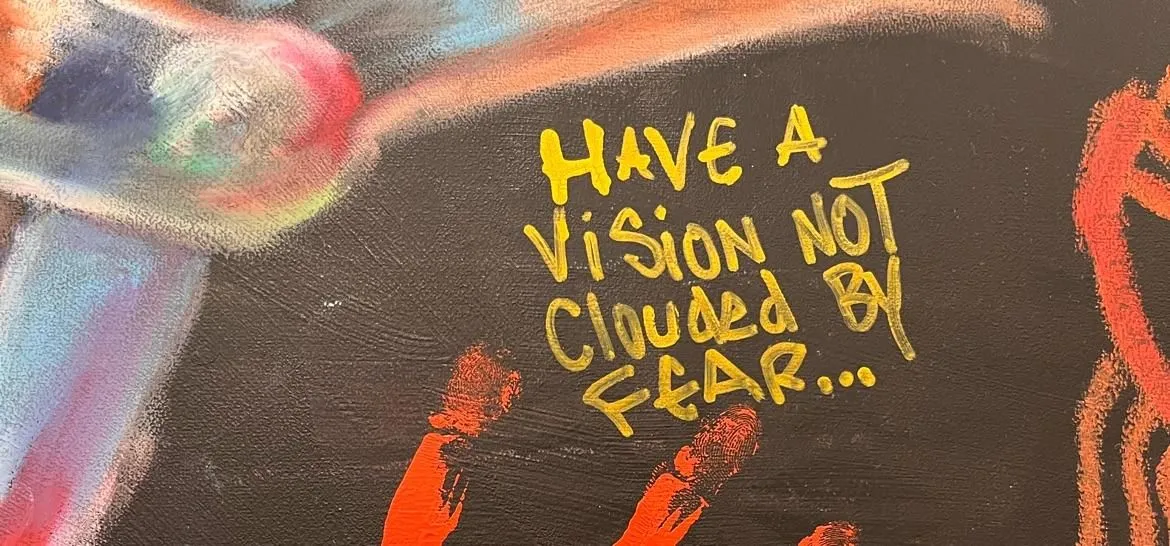 HAVE A
ViSiON NOT
ClOUdEd BY
FEAR...